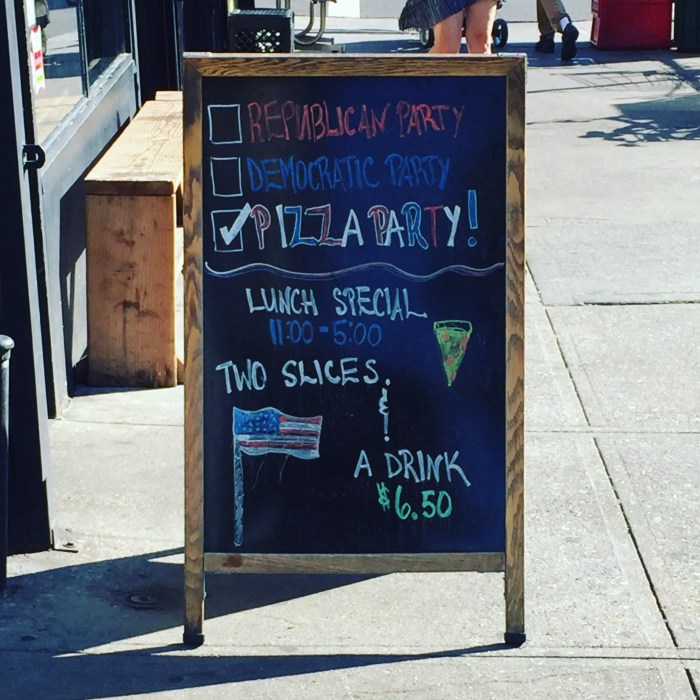 REPUBLICAN PARTY
DEMOCRATIC PARTY
PIZZA PARTY!
LUNCH SPECIAL
11:00-5:00
TWO SLICES.
&
A DRINK
$6.50